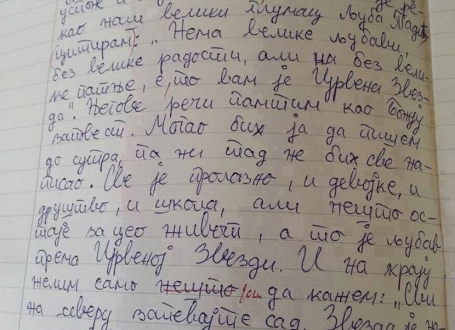 као наш велики глумац Љуба Тадић
(цитирам): „Нема велике љубави,
без велике радости, али ни без вели-
ке патње, е, то вам је Црвена Звез-
да“. Његове речи памтим као божју
заповест. Могао бих ја да пишем
до сутра, па ни тад не бих све на-
писао. Све је пролазно, и девојке, и
друштво, и школа, али нешто ос-
таје за цео живот, а то је љубав
према Црвеној Звезди. И на крају
желим само нешто још да кажем: „Сви
на северу запевајте сад, Звезда је